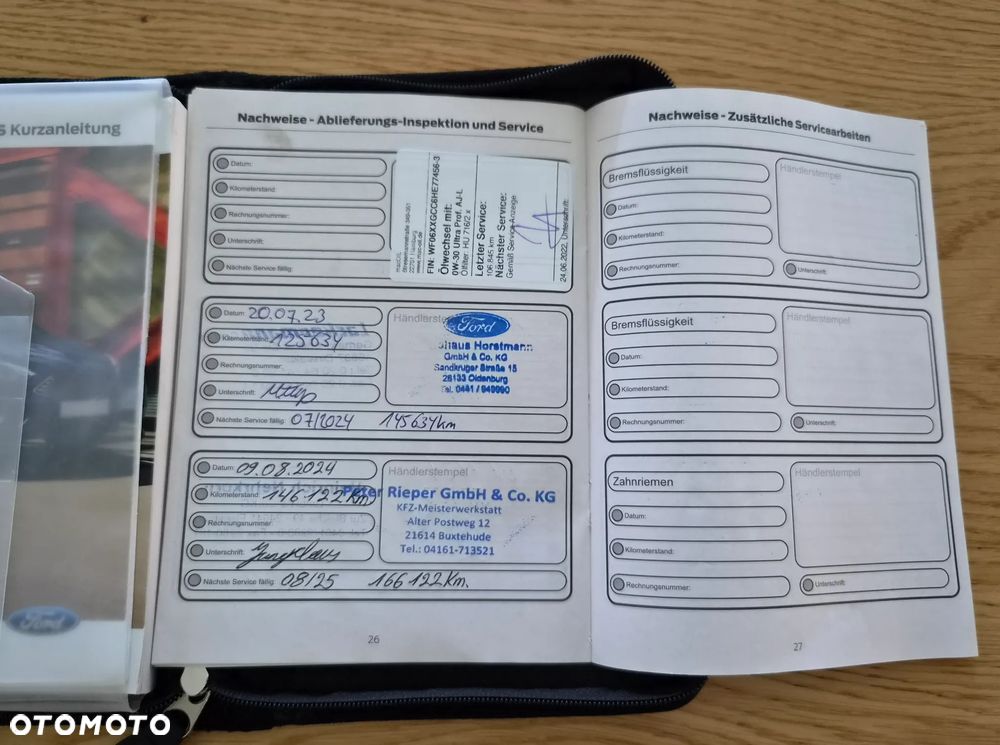 Kurzanleitung
Ford
Nachweise - Ablieferungs-Inspektion und Service
Datum:
Kilometerstand:
Rechnungsnummer:
Unterschrift:
Nächste Service fällig:
22701
FIN: WF06XXGCC6HE77456-3
Ölwechsel mit:
0W-30 Ultra Prof. AJ-L
Ölfilter: HU 716/2 x
Letzter Service:
106.845 km
Nächster Service:
Gemäß Service-Anzeige
24.06.2022, Unterschrift:
Datum: 20.07.23
Kilometerstand: 125634
Rechnungsnummer:
Unterschrift:
Nächste Service fällig: 07/2024 145634km
Ford
Horstmann
GmbH & Co. KG
Sandkruger Straße 15
26133 Oldenburg
Tel. 0441 / 949990
Datum: 09.08.2024
Kilometerstand: 146.122 Km
Rechnungsnummer:
Unterschrift:
Nächste Service fällig: 08/25 166122 Km.
Händlerstempel
Peter Rieper GmbH & Co. KG
KFZ-Meisterwerkstatt
Alter Postweg 12
21614 Buxtehude
Tel.: 04161-713521
26
Nachweise - Zusätzliche Servicearbeiten
Bremsflüssigkeit
Datum:
Kilometerstand:
Rechnungsnummer:
Händlerstempel
Unterschrift:
Bremsflüssigkeit
Datum:
Kilometerstand:
Rechnungsnummer:
Händlerstempel
Unterschrift:
Zahnriemen
Datum:
Kilometerstand:
Rechnungsnummer:
Händlerstempel
Unterschrift:
27
OTOMOTO